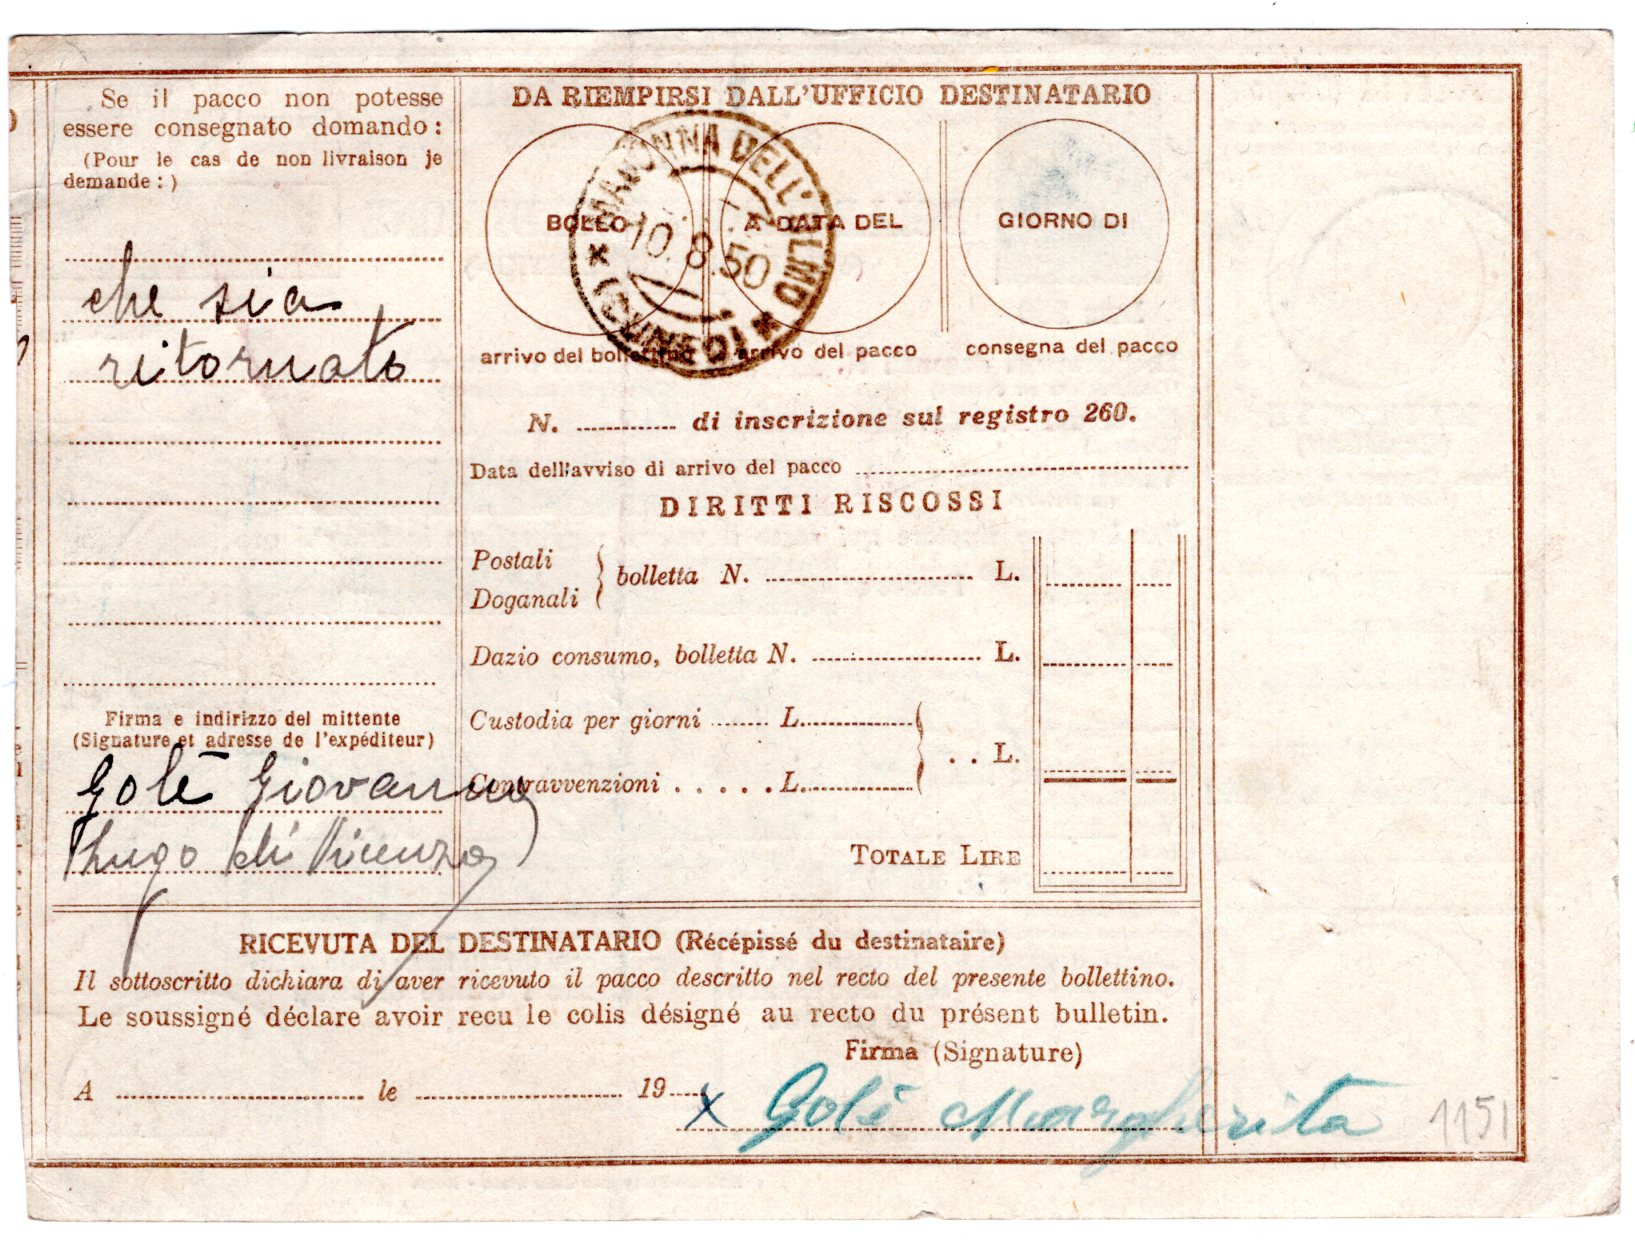 Se il pacco non potesse
essere consegnato domando:
(Pour le cas de non livraison je
demande:)
che sia
ritornato
Firma e indirizzo del mittente
(Signature et adresse de l'expéditeur)
Golè Giovanni
Lugo di Vicenza
DA RIEMPIRSI DALL'UFFICIO DESTINATARIO
BOLLO
A DATA DEL
GIORNO DI
MADONNA DELL'OLMO
10.8.50
* (CUNEO) *
arrivo del bollettino
arrivo del pacco
consegna del pacco
N. ............ di inscrizione sul registro 260.
Data dell'avviso di arrivo del pacco
DIRITTI RISCOSSI
Postali
Doganali
bolletta N. ............ L.
Dazio consumo, bolletta N. ............ L.
Custodia per giorni ........ L.
. . L.
Contravvenzioni . . . . . L.
TOTALE LIRE
RICEVUTA DEL DESTINATARIO (Récépissé du destinataire)
Il sottoscritto dichiara di aver ricevuto il pacco descritto nel recto del presente bollettino.
Le soussigné déclare avoir recu le colis désigné au recto du présent bulletin.
Firma (Signature)
A ............ le ............ 19....
x Golè Margherita
1151